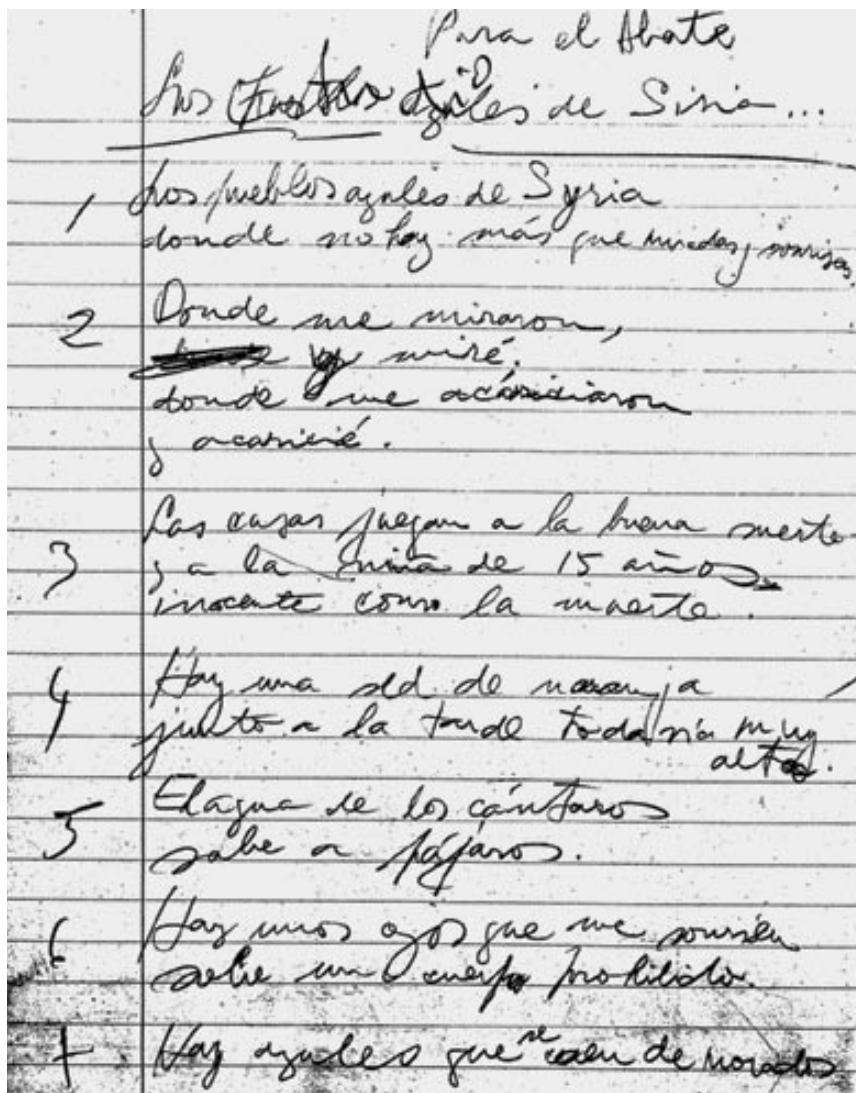 Para el Abate
Los Pueblos azules de Siria...
1 Los pueblos azules de Syria
donde no hay más que miradas y sonrisas.
2 Donde me miraron,
y miré.
donde me acariciaron
y acaricié.
Las casas juegan a la buena suerte
3 y a la niña de 15 años,
inocente como la muerte.
4 Hay una sed de naranja
junto a la tarde todavía muy
alta.
El agua de los cántaros
5 sabe a pájaros.
6 Hay unos ojos que me sonríen
sobre un cuerpo prohibido.
7 Hay azules que se caen de morados